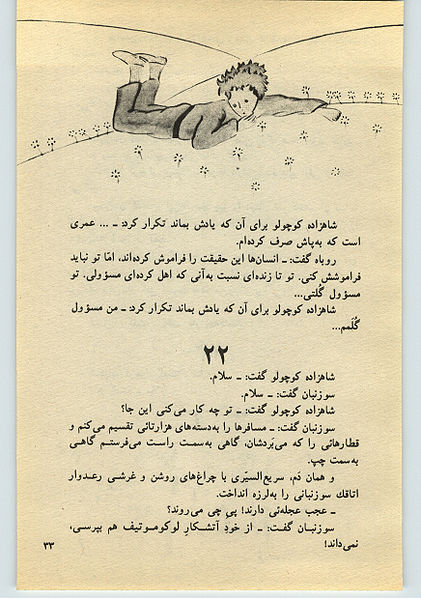 شاهزاده کوچولو برای آن که یادش بماند تکرار کرد: ـ ... عمری
است که به‌پاش صرف کرده‌ام.
روباه گفت: ـ انسان‌ها این حقیقت را فراموش کرده‌اند، امّا تو نباید
فراموشش کنی. تو تا زنده‌ای نسبت به‌آنی که اهل کرده‌ای مسؤولی. تو
مسؤول گُلتی...
شاهزاده کوچولو برای آن که یادش بماند تکرار کرد: ـ من مسؤول
گُلَمم...
۲۲
شاهزاده کوچولو گفت: ـ سلام.
سوزنبان گفت: ـ سلام.
شاهزاده کوچولو گفت: ـ تو چه کار می‌کنی این جا؟
سوزنبان گفت: ـ مسافرها را به‌دسته‌های هزارتائی تقسیم می‌کنم و
قطارهائی را که می‌بَردشان، گاهی به‌سمت راست می‌فرستم گاهی
به‌سمت چپ.
و همان دَم، سریع‌السیّری با چراغ‌های روشن و غرشی رعدوار
اتاقك سوزنبانی را به‌لرزه انداخت.
ـ عجب عجله‌ئی دارند! پیِ چی می‌روند؟
سوزنبان گفت: ـ از خودِ آتشکارِ لوکوموتیف هم بپرسی،
نمی‌داند!
۳۳